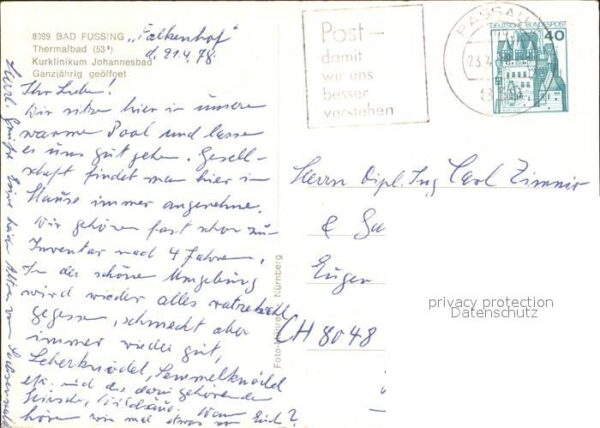 8399 BAD FÜSSING „Falkenhof"
Thermalbad (53°) d. 21.4.78.
Kurklinikum Johannesbad
Ganzjährig geöffnet
Ihr Lieben!
Wir sitzen hier in unsere
warme Pool und lassen
es uns gut gehen. Gesell-
schaft findet man hier im
Hause immer angenehme.
Wir gehören fast schon zum
Inventar nach 4 Jahren.
In der schöne Umgebung
wird wieder alles ratzekahl
gegessen, schmeckt aber
immer wieder gut,
Leberknödel, Semmelknödel
etc. und die dazu gehörenden
Wann
hören wir mal etwas von Euch?
Herzl. Grüße
Post-
damit
wir uns
besser
verstehen
PASSAU
DEUTSCHE BUNDESPOST
40
Herrn Dipl. Ing Carl
Eugen
CH 8048
Nürnberg
privacy protection
Datenschutz